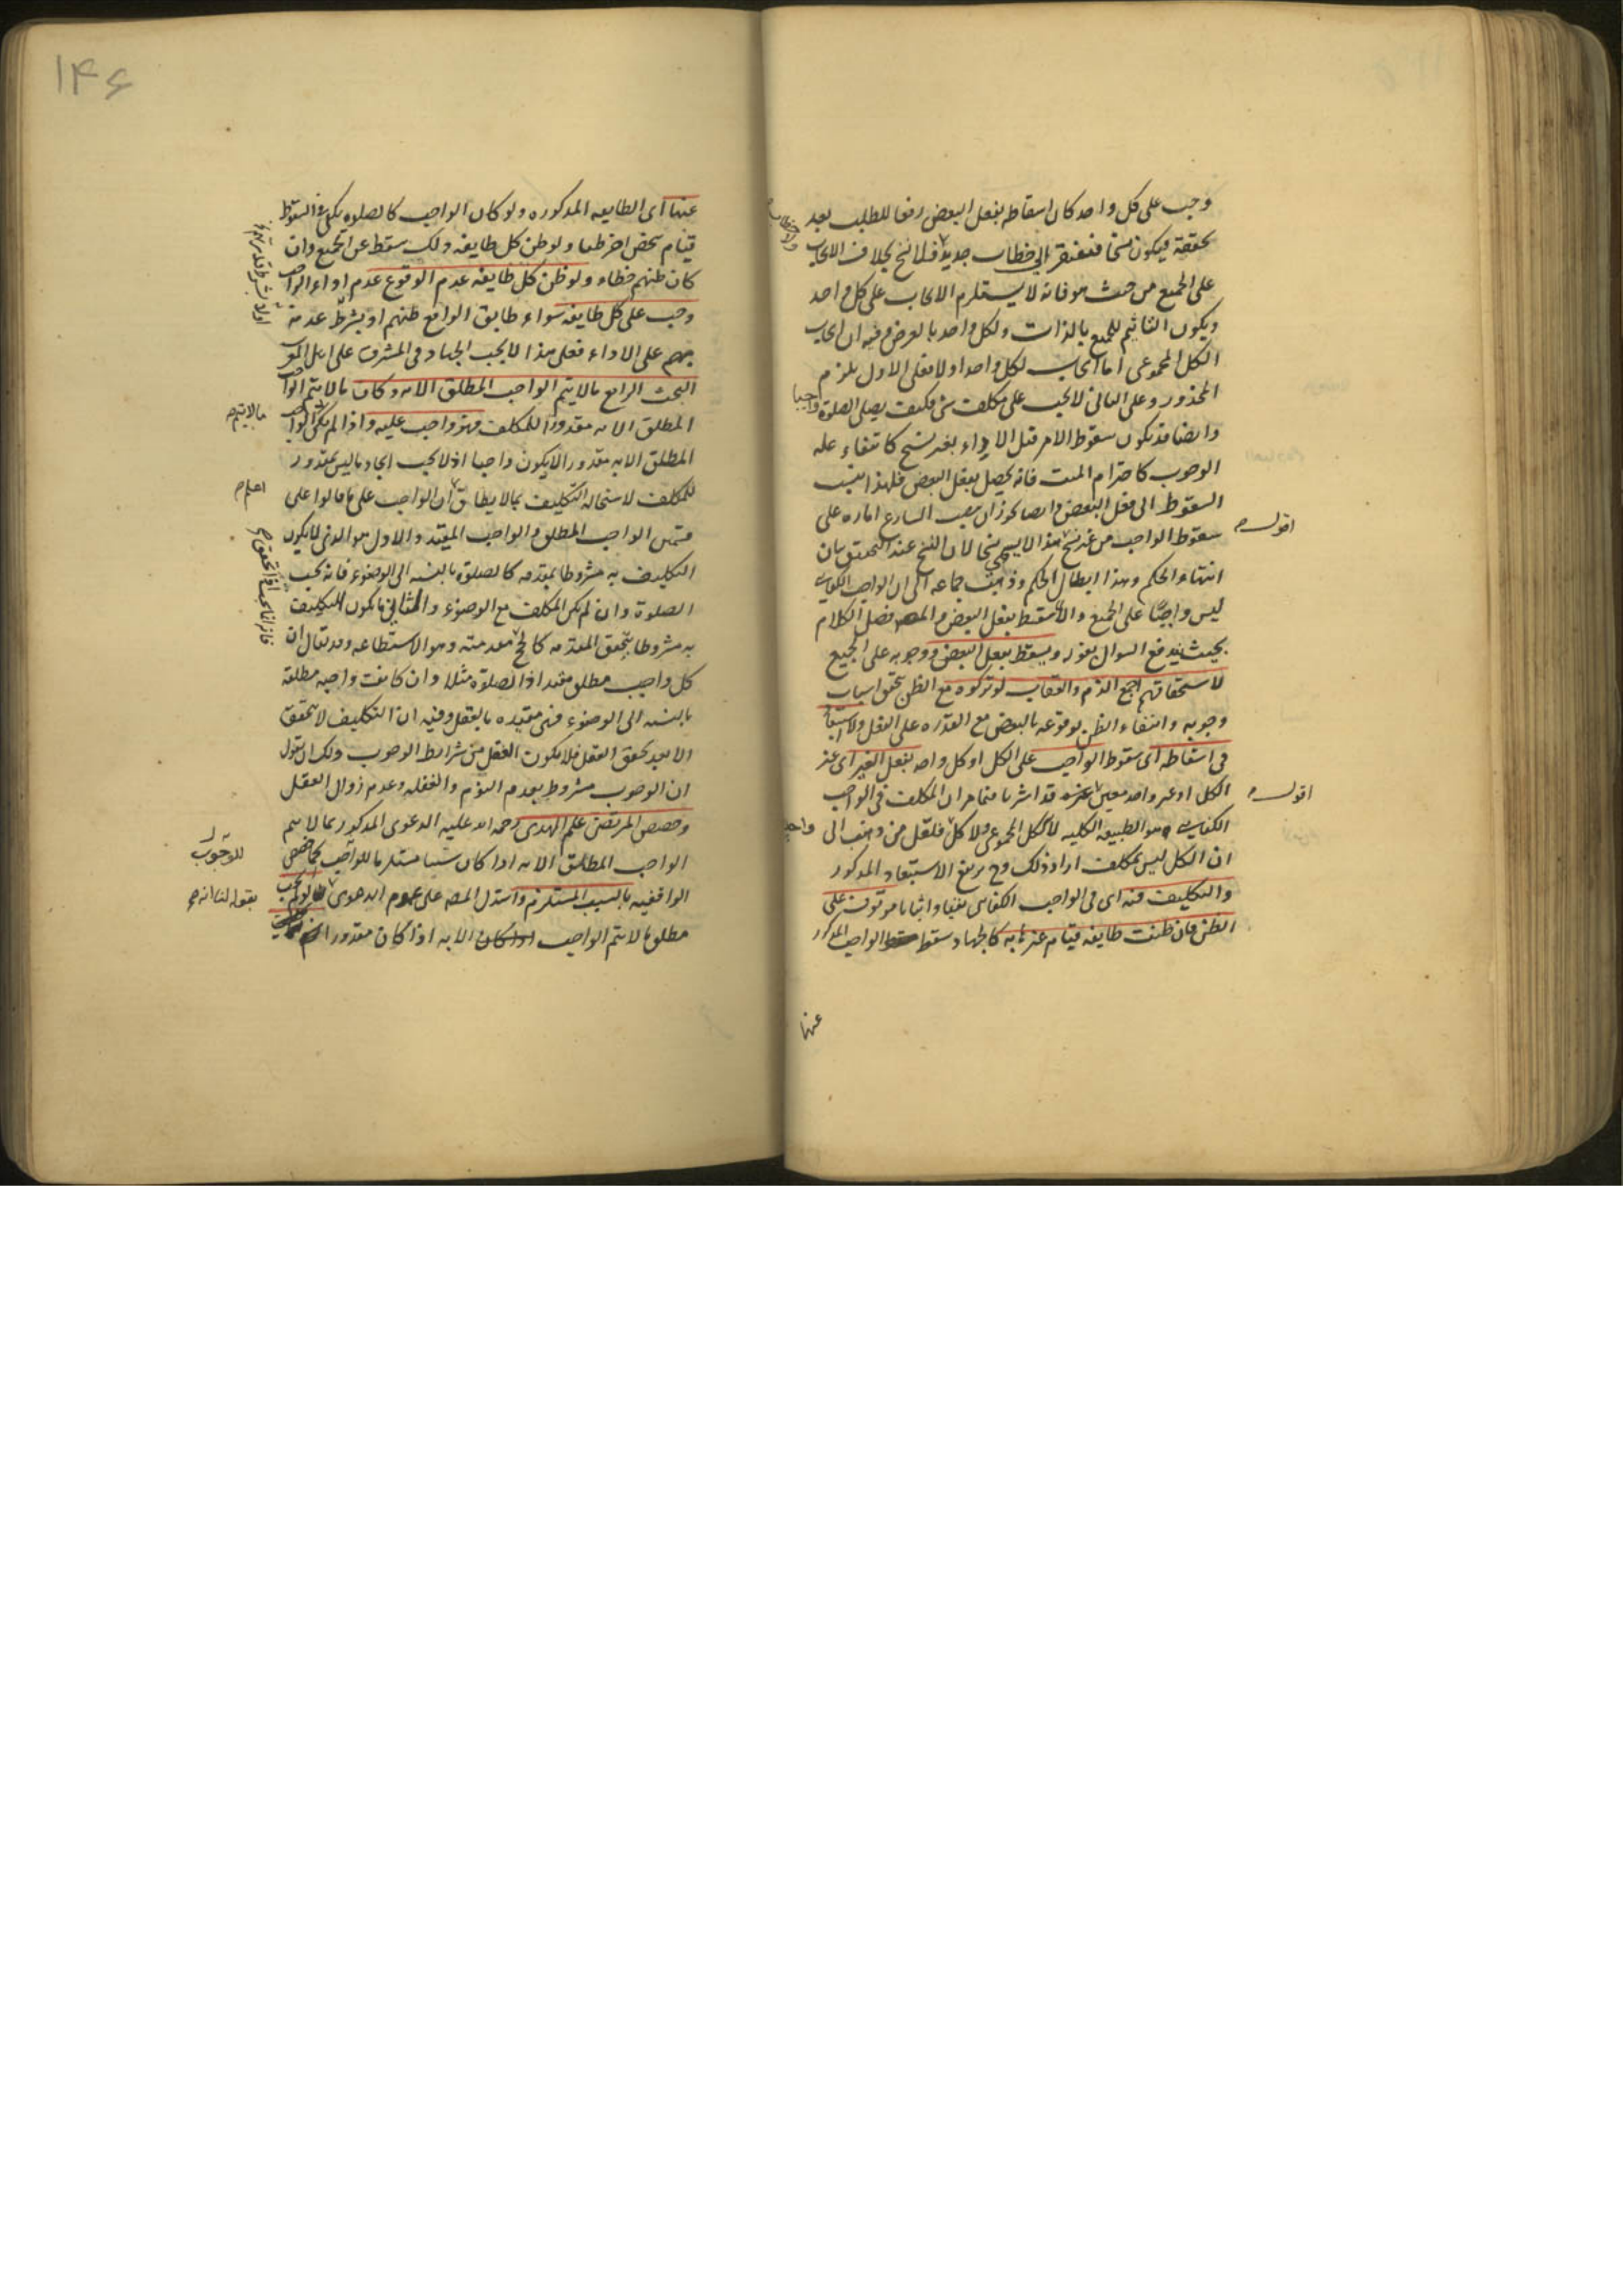 وجب على كل واحد كان اسقاطه بفعل البعض رفعا للطلب بعد
تحققه فيكون نسخا فيفتقر الى خطاب جديد فلا نسخ بخلاف الايجاب
على الجميع من حيث هو فانه لا يستلزم الايجاب على كل واحد
ويكون التاثيم للجميع بالذات ولكل واحد بالعرض وفيه ان ايجاب
الكل المجموعى اما ايجاب لكل واحد اولا فعلى الاول يلزم
المحذور وعلى الثانى لا يجب على مكلف شئ فكيف يصلى الصلوة
واجبا
وايضا قد يكون سقوط الامر قبل الاداء بغير نسخ كانتفاء علة
الوجوب كاحترام الميت فانه يحصل بفعل البعض فلهذا ينسب
السقوط الى فعل البعض وايضا يجوز ان ينصب الشارع امارة على
سقوط الواجب من غير نسخ هذا لا يسمى نسخا لان النسخ عند التحقيق بيان
اقول
انتهاء الحكم وهذا ابطال الحكم وذهب جماعة الى ان الواجب الكفائى
ليس واجبا على الجميع والا لما سقط بفعل البعض والمصنف فصل الكلام
بحيث يندفع السوال بقوله ويسقط بفعل البعض ووجوبه على الجميع
لاستحقاقهم اجمع الذم والعقاب لو تركوه مع الظن تحقق اسباب
وجوبه وانتفاء الظن بوقوعه بالبعض مع القدرة على الفعل ولا استبعاد
فى اسقاطه اى سقوط الواجب على الكل او كل واحد بفعل الغير اى غير
الكل او غير واحد معين قد اشرنا فيما مر ان المكلف فى الواجب
اقول
الكفائى هو الطبيعة الكلية لا الكل المجموعى ولا كل فلعل من ذهب الى
واحد
ان الكل ليس بمكلف اراد ذلك وح يرتفع الاستبعاد المذكور
والتكليف فيه اى فى الواجب الكفائى نفيا واثباتا موقوف على
الظن فان ظنت طايفة قيام غيرها به كالجهاد سقط الواجب المذكور
عنها
۱۴۶
عنها اى الطايفة المذكورة ولو كان الواجب كالصلوة يكفى فى السقوط
قيام شخص اخر ظنا ولو ظن كل طايفة ذلك سقط عن الجميع وان
كان ظنهم خطاء ولو ظن كل طايفة عدم الوقوع عدم اداء الواجب
وجب على كل طايفة سواء طابق الواقع ظنهم او بشرط عدمه
منهم على الاداء فعلى هذا لا يجب الجهاد فى المشرق على اهل المغرب
البحث الرابع ما لا يتم الواجب المطلق الا به وكان ما لا يتم الواجب
المطلق الا به مقدورا للمكلف فهو واجب عليه واذا لم يكن الواجب
ما لا يتم
المطلق الا به مقدورا لا يكون واجبا اذ لا يجب ايجاد ما ليس بمقدور
للمكلف لاستحالة التكليف بما لا يطاق ان الواجب على ما قالوا على
اعلم
قسمين الواجب المطلق والواجب المقيد والاول هو الذى لا يكون
التكليف به مشروطا بمقدمة كالصلوة بالنسبة الى الوضوء فانه يجب
الصلوة وان لم يكن المكلف مع الوضوء والثانى ما يكون التكليف
به مشروطا بتحقق المقدمة كالحج مقدمته وهو الاستطاعة وقد يقال ان
فانه انما يجب اذا تحقق
كل واجب مطلق مقيد اذ الصلوة مثلا وان كانت واجبة مطلقة
بالنسبة الى الوضوء فهى مقيدة بالعقل وفيه ان التكليف لا يتحقق
الا بعد تحقق العقل فلا يكون العقل من شرايط الوجوب ولك ان تقول
ان الوجوب مشروط بعدم النوم والغفلة وعدم زوال العقل
وخصص المرتضى علم الهدى رحمه الله عليه الدعوى المذكور بما لا يتم
الواجب المطلق الا به اذا كان سببا مستلزما للواجب كما خصص
للوجوب
الواقفية بالسبب المستلزم واستدل المصنف على عموم الدعوى لو لم يجب
بقوله لنا انه
مطلق ما لا يتم الواجب الا به اذا كان مقدورا